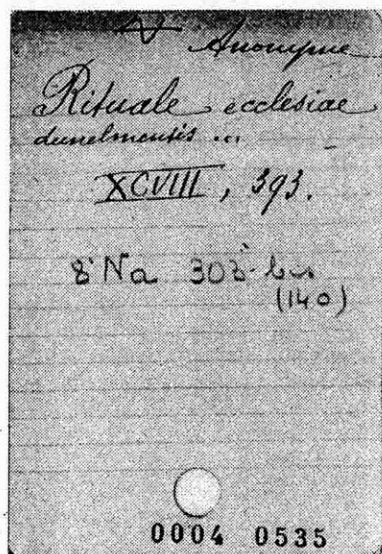 Anonyme
Rituale ecclesiae
dunelmensis ...
XCVIII, 393.
8° Na 303-bis
(140)
0004 0535